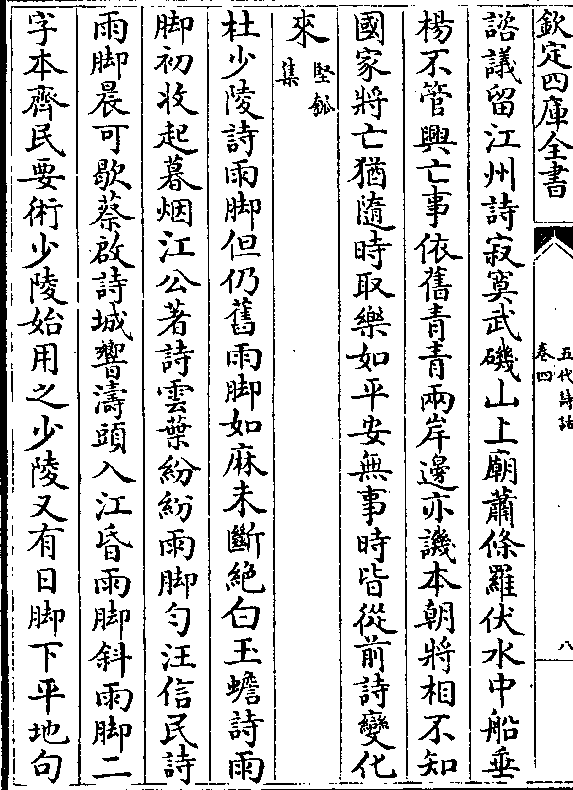 欽定四庫全書
五代詩話
卷四
八
諮議留江州詩寂寞武磯山上廟蕭條羅伏水中船垂
楊不管興亡事依舊青青兩岸邊亦譏本朝將相不知
國家將亡猶隨時取樂如平安無事時皆從前詩變化
來堅瓠集
杜少陵詩雨脚但仍舊雨脚如麻未斷絶白玉蟾詩雨
脚初收起暮烟江公著詩雲葉紛紛雨脚勻汪信民詩
雨脚晨可歇蔡啟詩城響濤頭入江昏雨脚斜雨脚二
字本齊民要術少陵始用之少陵又有日脚下平地句